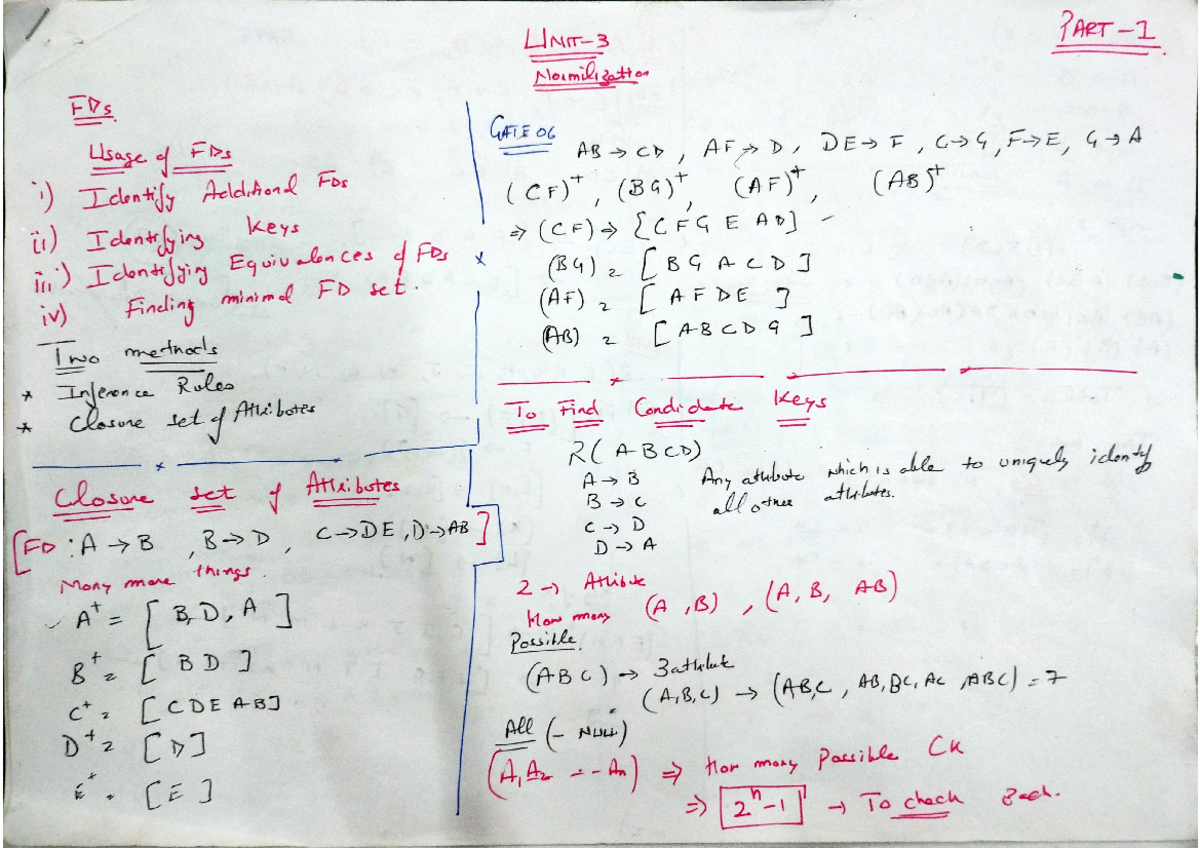 UNIT-3
PART-1
Normilization
FDs.
Usage of FDs
i) Identify Additional FDs
ii) Identifying Keys
iii) Identifying Equivalences of FDs
iv) Finding minimal FD set.
Two methods
* Inference Rules
* Closure set of Attributes
Closure set of Attributes
[FD: A → B , B → D , C → DE , D → AB]
Many more things.
A⁺ = [B, D, A]
B⁺ = [B D]
C⁺ = [C D E A B]
D⁺ = [D]
E⁺ = [E]
GATE 06
AB → CD , AF → D , DE → F , C → G , F → E , G → A
(CF)⁺ , (BG)⁺ , (AF)⁺ , (AB)⁺
⇒ (CF) ⇒ {C F G E A D] -
(BG) = [B G A C D]
(AF) = [A F D E ]
(AB) = [A B C D G]
To Find Candidate Keys
R(ABCD)
A → B
B → C
C → D
D → A
Any attribute which is able to uniquely identify
all other attributes.
2 → Attribute
How many (A, B) , (A, B, AB)
Possible.
(ABC) → 3 attribute
(A,B,C) → (A,B,C, AB, BC, AC, ABC) = 7
All (- NULL)
(A₁ A₂ - - An) ⇒ How many Possible CK
⇒ 2ⁿ-1 → To check Each.